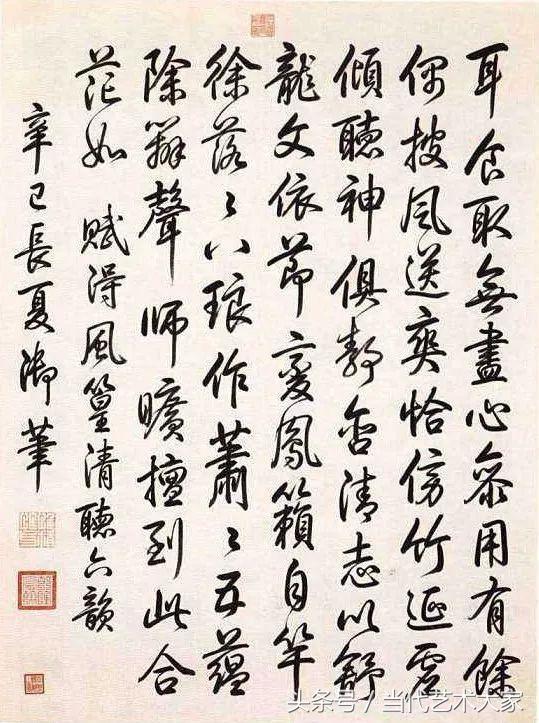 耳食取無盡心參用有餘
偶披風送爽恰傍竹延虛
傾聽神俱靜含清志以舒
龍文依節變鳳籟自竿
徐落〻八琅作蕭〻五蘊
除辨聲師曠擅到此合
茫如 賦得風篁清聽六韻
辛巳長夏御筆
头条号 / 当代艺术大家